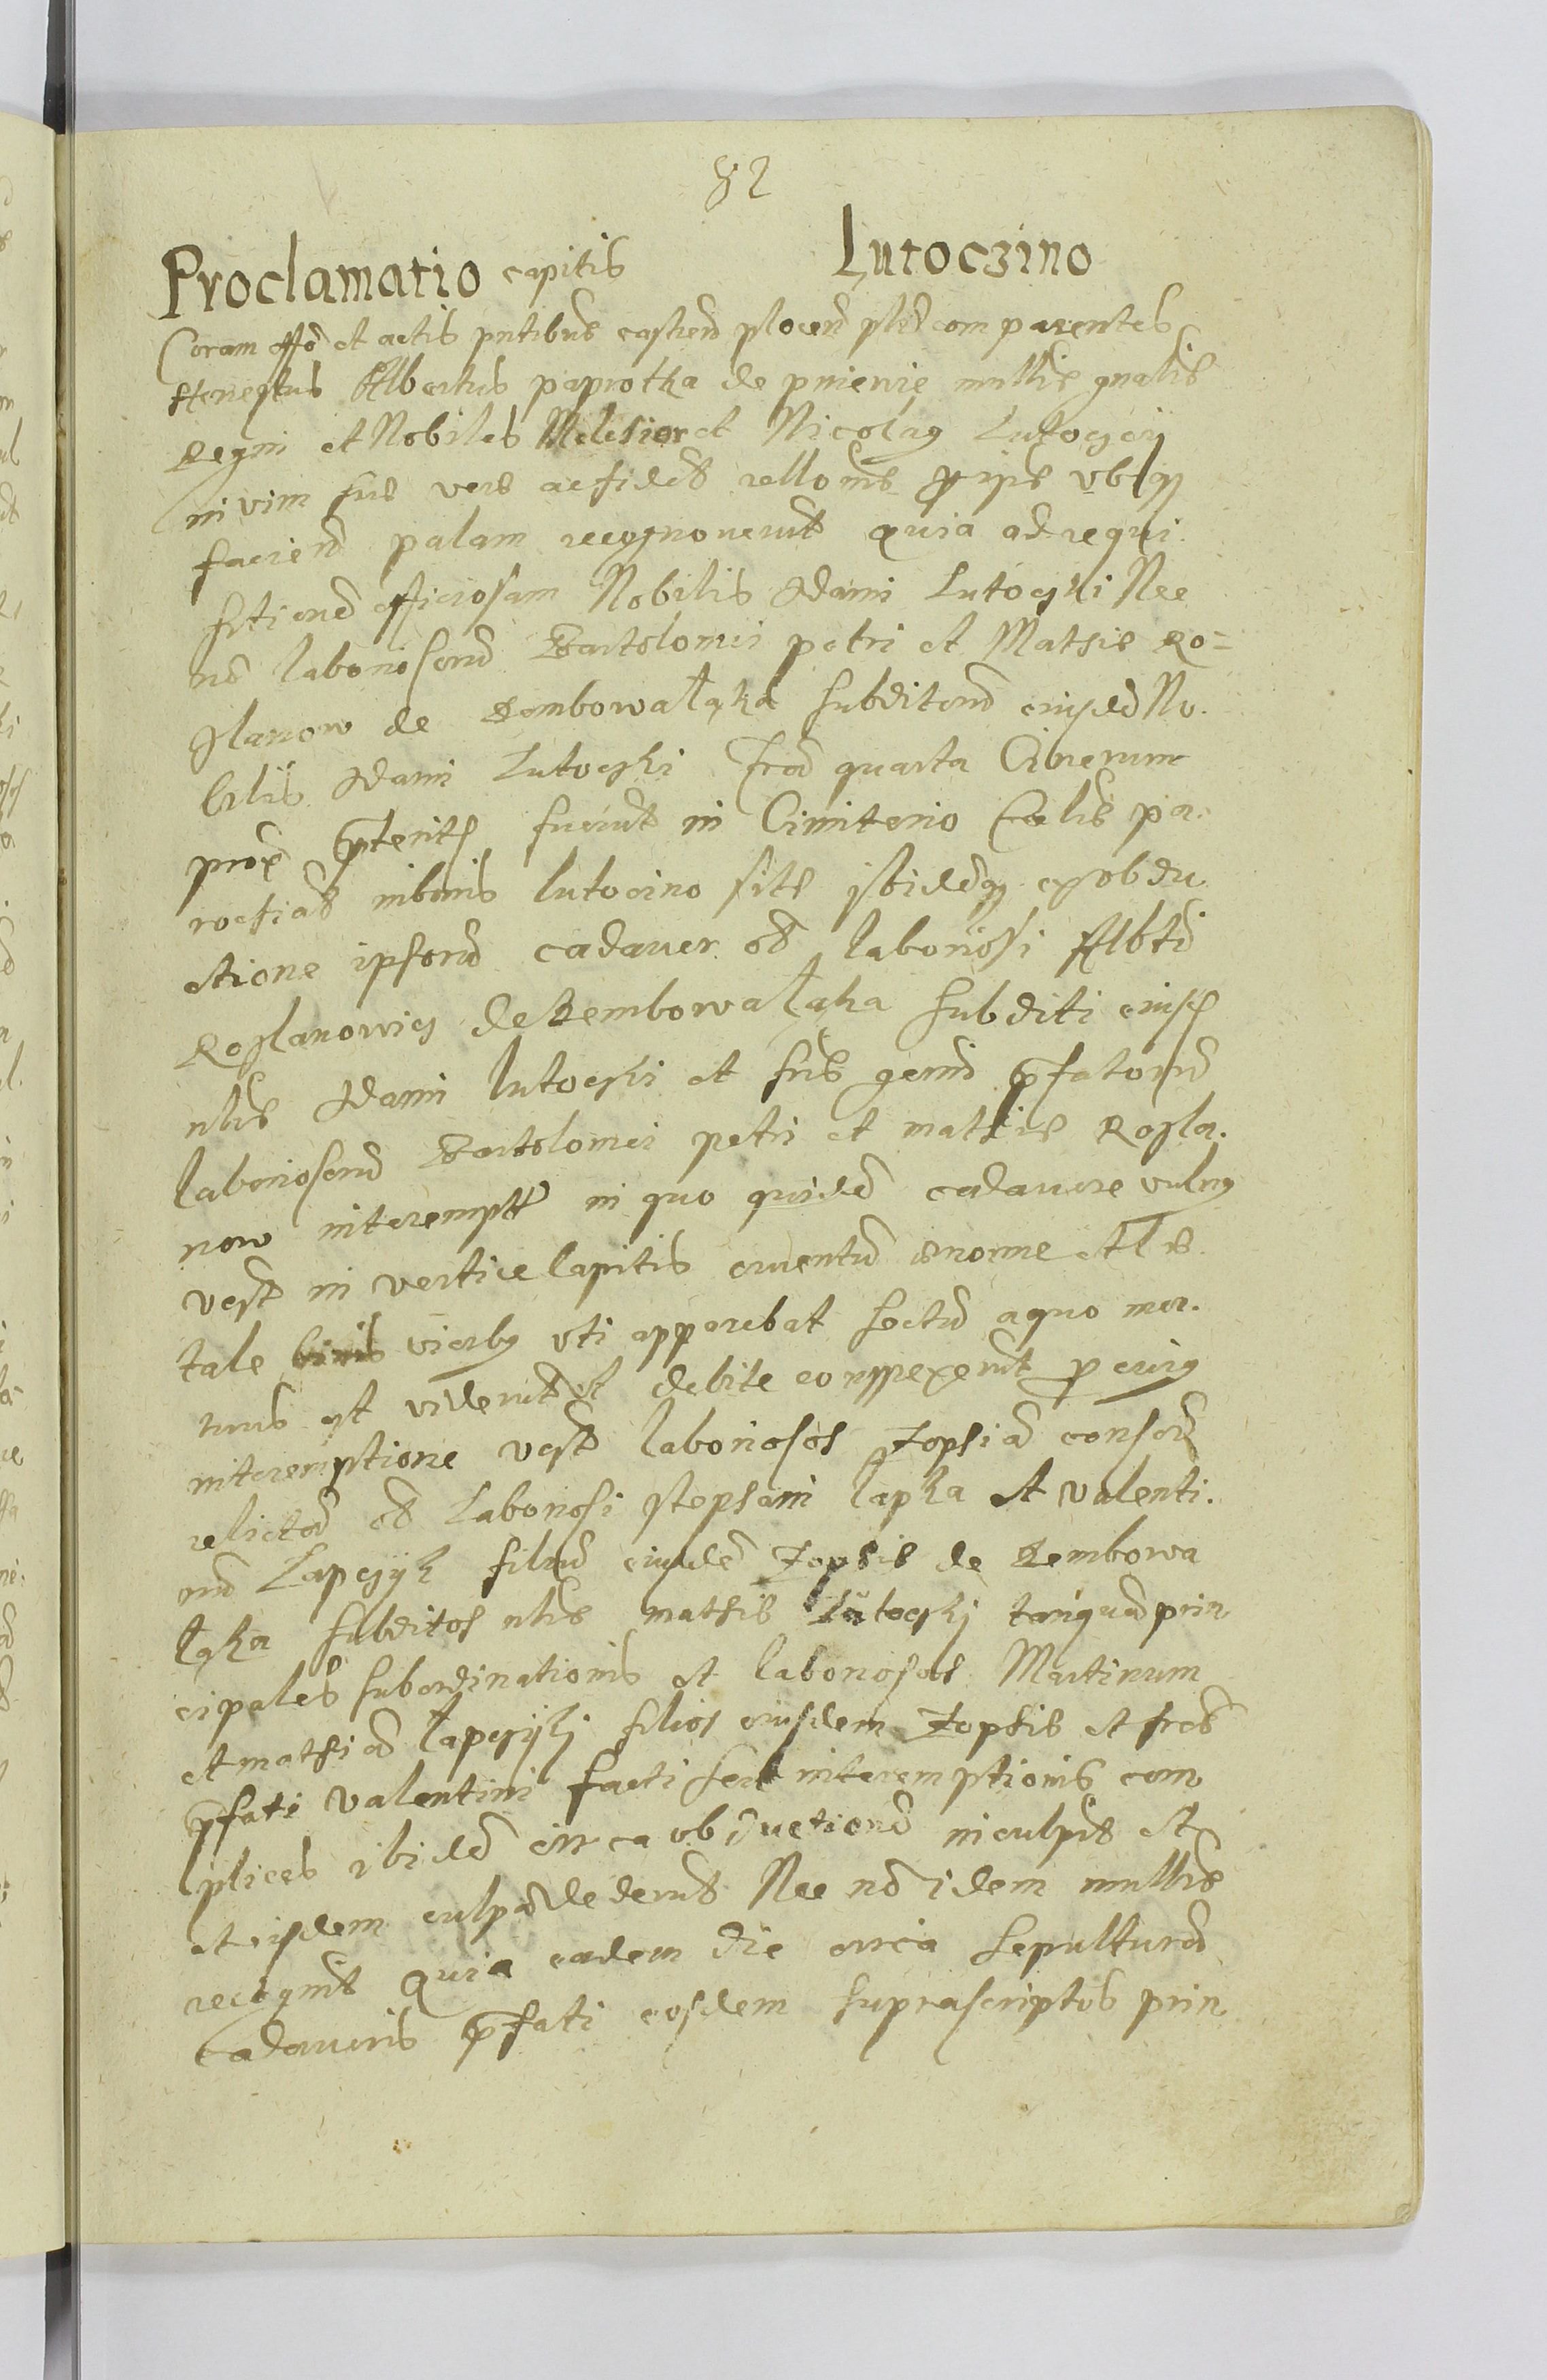 82
Proclamatio capitis Lutoczino
Coram offo et actis pntibus castren plocen psl comparentes
Honestus Albertus paprotka de pnienie mllis gnalis
Regni et Nobiles Melchior et Nicolaq Lutoczey
in vim sue vere ac fidel rellonis ipse vbiq
faciend palam recognouerut quia ad requi
sitione officiosam Nobilis Adami Lutoczki Nec
no laboriosoru Bartolomei petri et Mathie Ro=
slanow de Rembowałąka subditoru eiusde No
bilis Adami Lutoczki Feria quarta Cinerum
prox pterit fuerut in Cimiterio Eccles pa
rochial in bonis lutocino site ibideq ex obdu
ctione ipsoru cadauer ol laboriosi Albti
Roslanowicz de Rembowałąka subditi eiusd
nlis Adami lutoczki et fris germ pfatoru
laboriosoru Bartolomei petri et mathie Rosla
now interempti in quo quide cadauere vulnq
vest in vertice capitis cruentu enorme et le
tale viorbq vti apparebat sectu a quo mor
tuus est viderut et debite conspexerut p cuiq
interemptione vest laboriosos Zophia consor
relicta ol Laboriosi stephani łapka et valenti
nu Łapczyk filiu eiusde Zophie de Rembowa
łąka subditos nlis mathie Lutoczkj tanqua prin
cipales subordinationis et laboriosos Martinum
et mathia łapczykj filios eiusdem Zophie et fres
pfati valentini facti seu interemptionis com
plices ibide circa obductione inculpt et
et eisdem culpa dederut Nec no idem mllis
recognt quia eadem die circa sepultura
cadaueris pfati eosdem suprascriptos prin